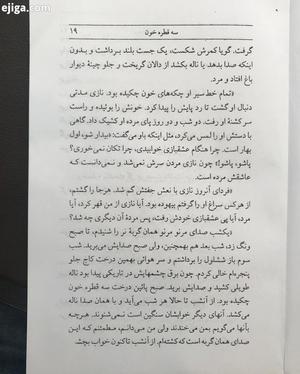 ejiga.com
سه قطره خون
۱۹
گرفت. گویا کمرش شکست، یک جست بلند برداشت و بدون
اینکه صدا بدهد یا ناله بکشد از دالان گریخت و جلو چینهٔ دیوار
باغ افتاد و مرد.
«تمام خط سیر او چکه‌های خون چکیده بود. نازی مدتی
دنبال او گشت تا رد پایش را پیدا کرد. خونش را بوئید و راست
سر کشتهٔ او رفت. دو شب و دو روز پای مرده او کشیک داد. گاهی
با دستش او را لمس می‌کرد، مثل اینکه باو می‌گفت: «بیدار شو، اول
بهار است. چرا هنگام عشقبازی خوابیدی، چرا تکان نمی‌خوری؟
پاشو، پاشو!» چون نازی مردن سرش نمی‌شد و نمی‌دانست که
عاشقش مرده است.
«فردای آنروز نازی با نعش جفتش گم شد. هرجا را گشتم،
از هر کس سراغ او را گرفتم بیهوده بود. آیا نازی از من قهر کرد، آیا
مرد، آیا پی عشقبازی خودش رفت، پس مردهٔ آن دیگری چه شد؟
«یکشب صدای مرنو مرنو همان گربهٔ نر را شنیدم، تا صبح
ونگ زد، شب بعد هم بهمچنین، ولی صبح صدایش می‌برید. شب
سوم باز ششلول را برداشتم و سر هوائی بهمین درخت کاج جلو
پنجره‌ام خالی کردم. چون برق چشمهایش در تاریکی پیدا بود ناله
طویلی کشید و صدایش برید. صبح پائین درخت سه قطره خون
چکیده بود. از آنشب تا حالا هر شب می‌آید و با همان صدا ناله
می‌کشد. آنهای دیگر خوابشان سنگین است نمی‌شنوند. هرچه
بآنها می‌گویم بمن می‌خندند ولی من می‌دانم، مطمئنم که این
صدای همان گربه است که کشته‌ام. از آنشب تاکنون خواب بچشم